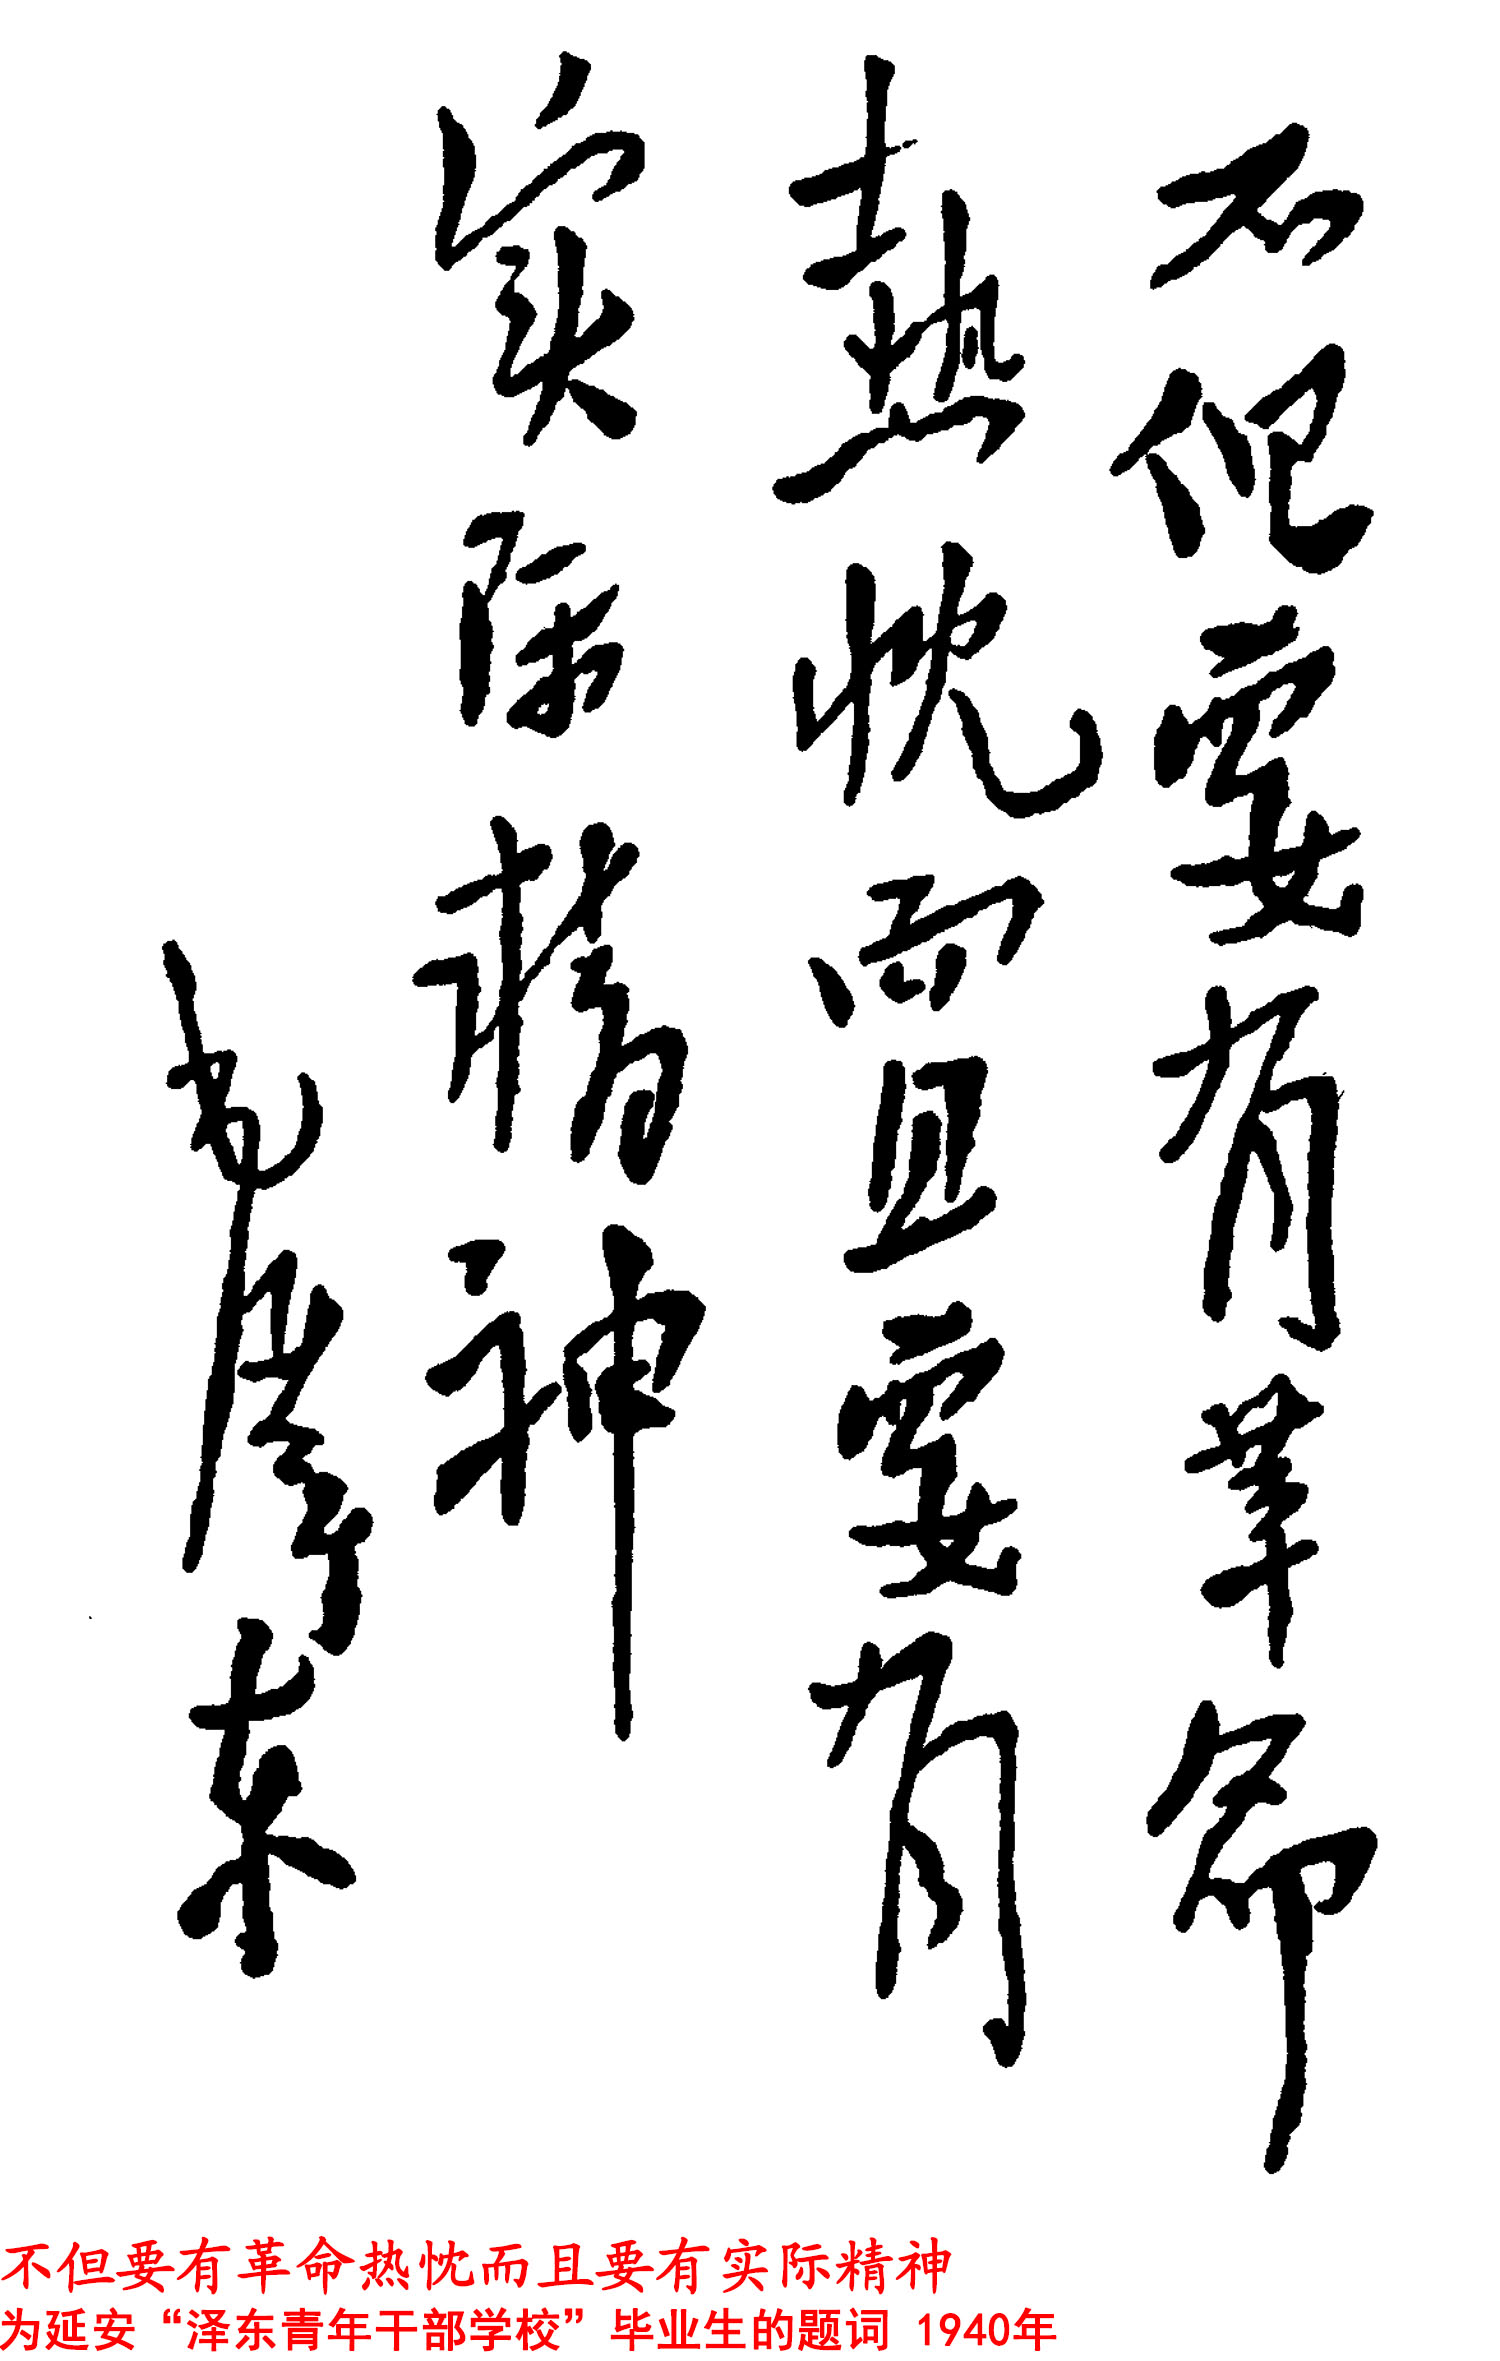 不但要有革命
热忱而且要有
实际精神
毛泽东
不但要有革命热忱而且要有实际精神
为延安“泽东青年干部学校”毕业生的题词 1940年